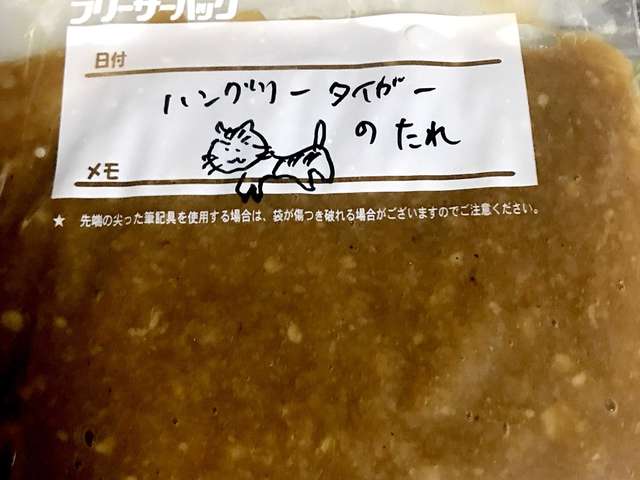 フリーザーバッグ
日付
ハングリータイガー
のたれ
メモ
★ 先端の尖った筆記具を使用する場合は、袋が傷つき破れる場合がございますのでご注意ください。